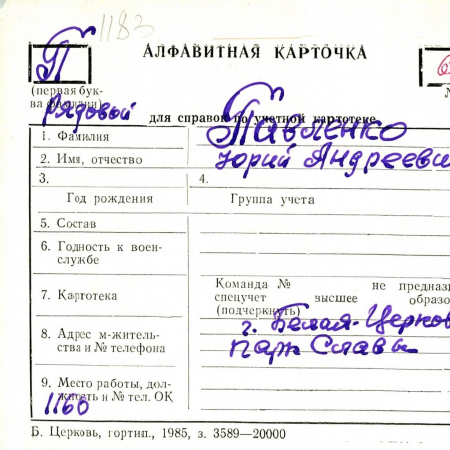 1183
П
АЛФАВИТНАЯ КАРТОЧКА
(первая бук-
ва фамилии)
рядовый
для справок по учетной картотеке
1. Фамилия Павленко
2. Имя, отчество Юрий Андреевич
3. 4.
Год рождения Группа учета
5. Состав
6. Годность к воен-
службе
Команда № не предназ
7. Картотека спецучет высшее образо
(подчеркнуть)
г. Белая-Церков
8. Адрес м-житель-
ства и № телефона
парк Славы
9. Место работы, дол-
жность и № тел. ОК
1160
Б. Церковь, гортип., 1985, з. 3589—20000